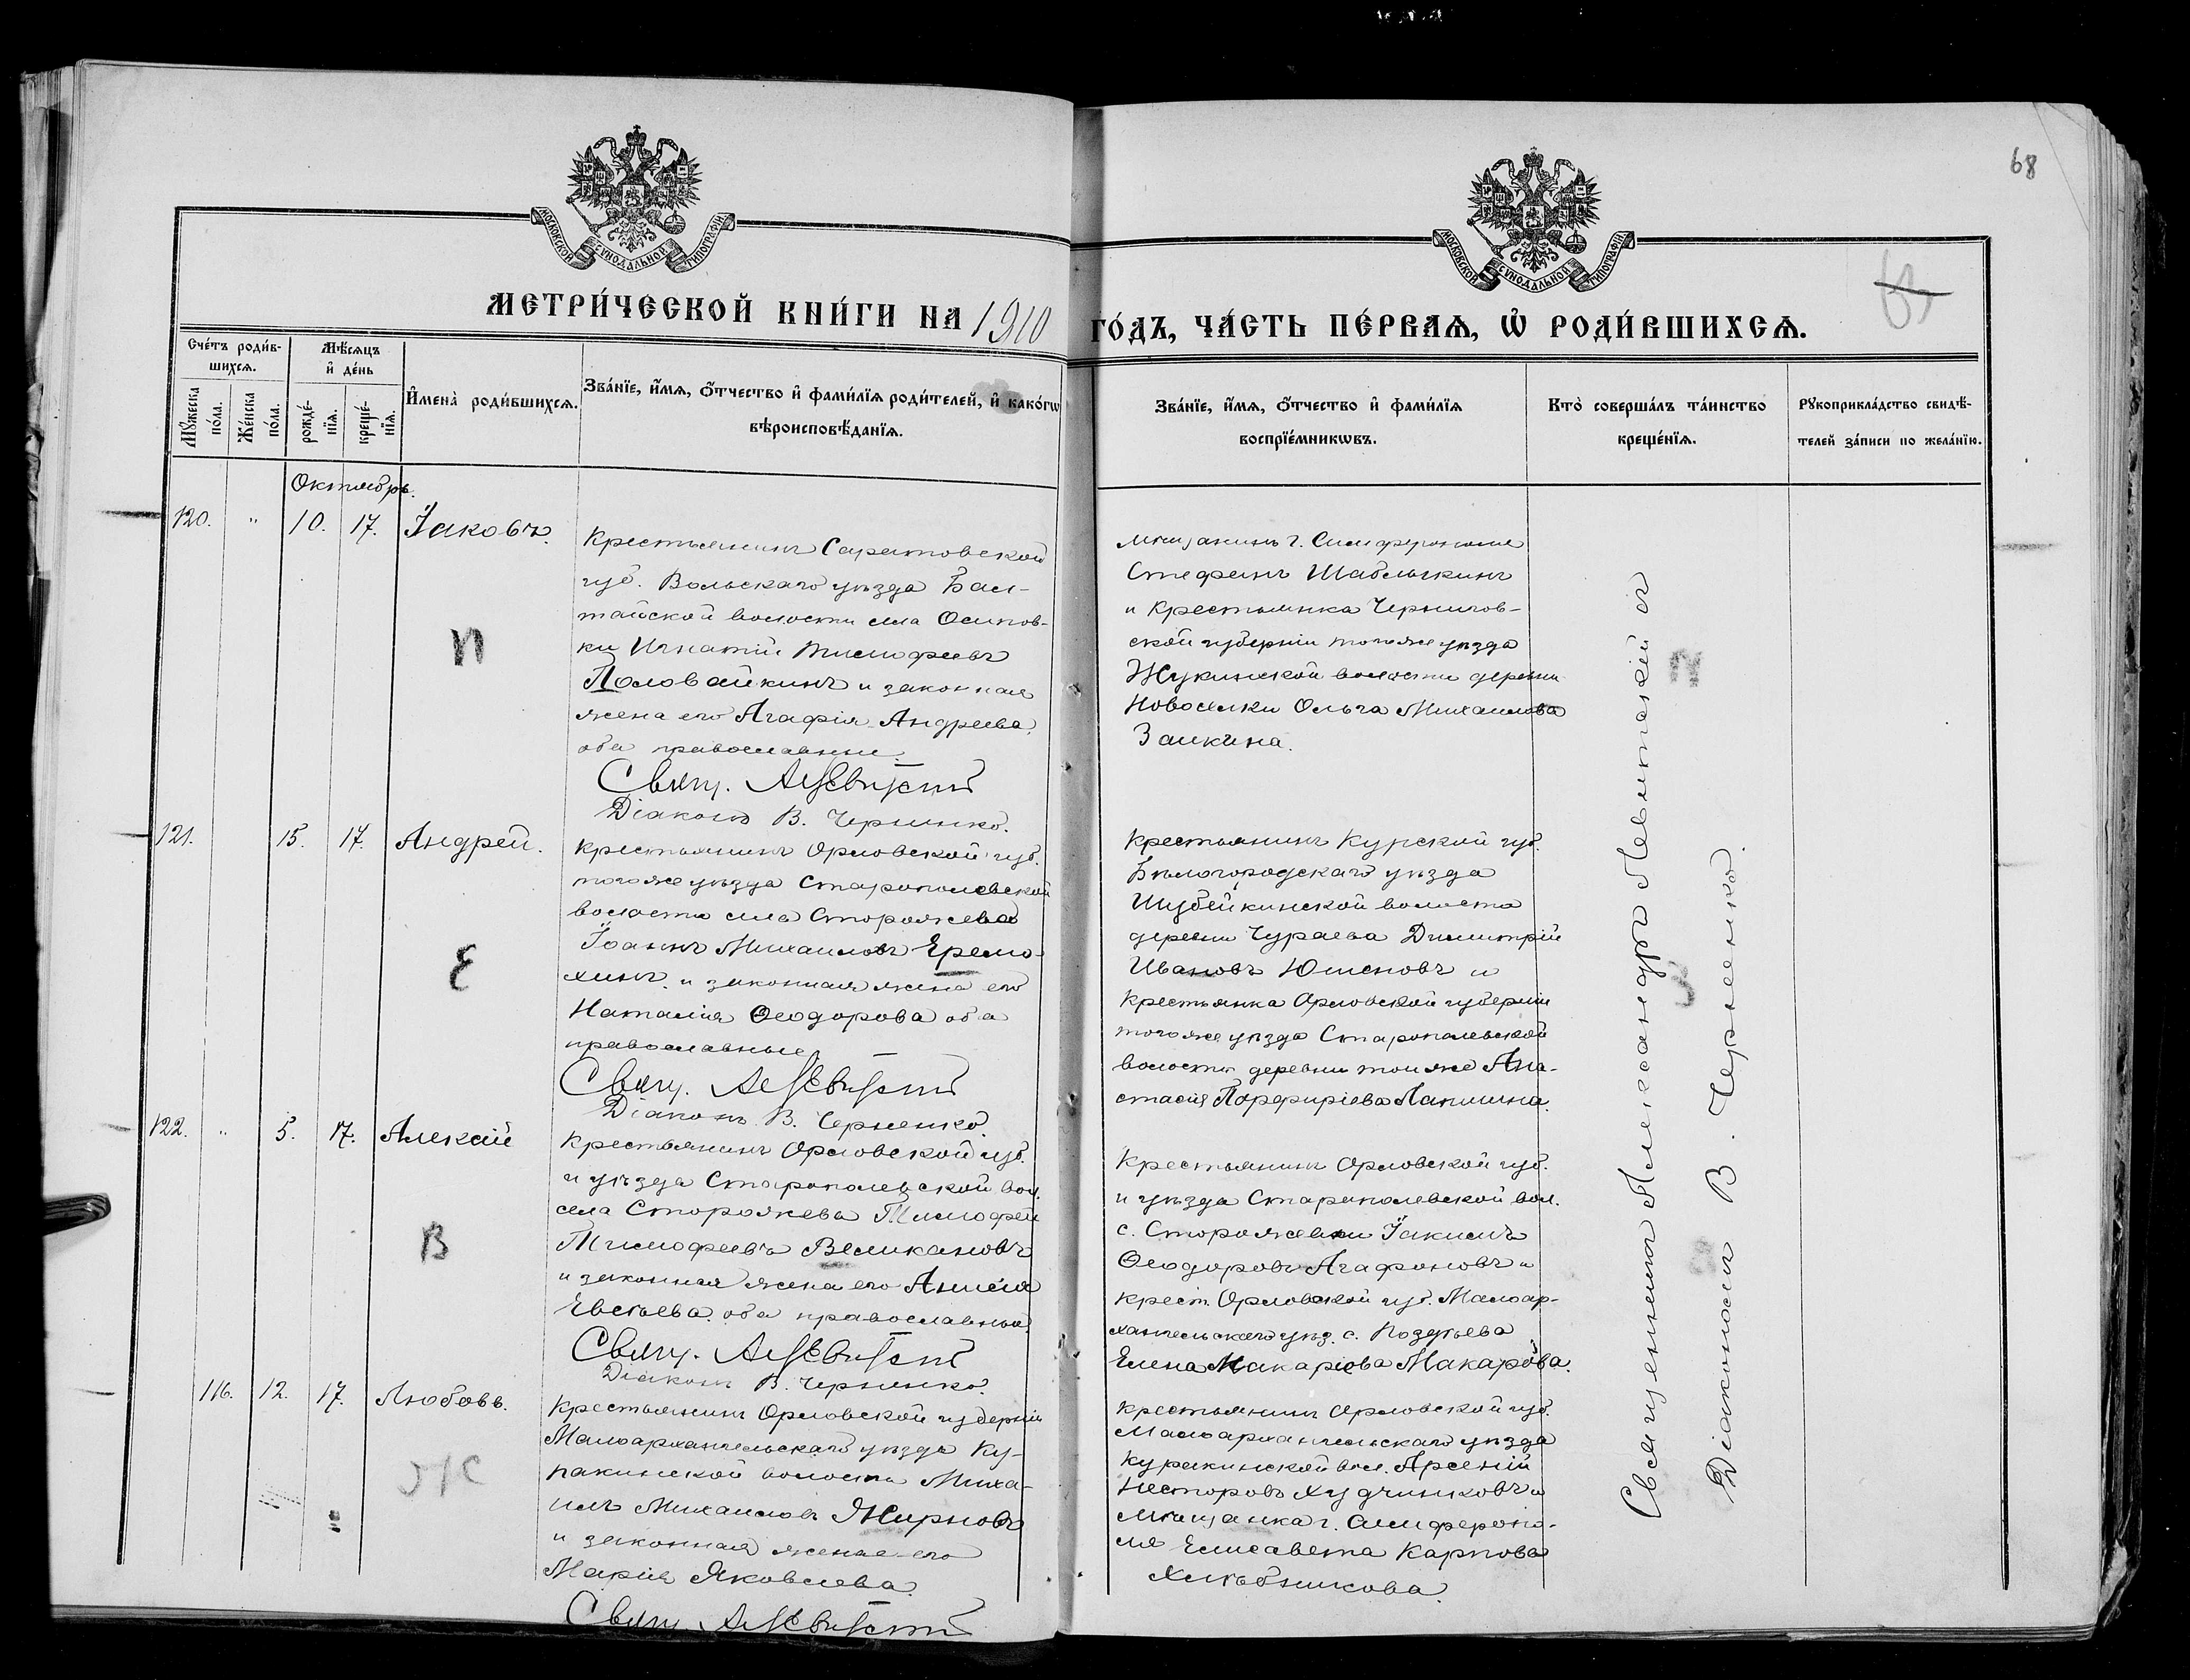 68
МОСКОВСКОЙ СѴНОДАЛЬНОЙ ТИПОГРАФІИ
МОСКОВСКОЙ СѴНОДАЛЬНОЙ ТИПОГРАФІИ
МЕТРИ́ЧЕСКОЙ КНИ́ГИ НА 1910 ГО́ДЪ, ЧА́СТЬ ПЕ́РВАѦ, Ѡ҆ РОДИ́ВШИХСѦ.
Сче́тъ роди́в-
шихсѧ.
Мꙋ́жеска
по́ла.
Же́нска
по́ла.
Мѣ́сѧцъ
и҆ де́нь
рожде́-
нїѧ.
креще́-
нїѧ.
И҆мена̀ роди́вшихсѧ.
Зва́нїе, и҆́мѧ, ѻ҆́тчество и҆ фами́лїѧ роди́телей, и҆ како́гѡ
вѣроисповѣ́данїѧ.
Зва́нїе, и҆́мѧ, ѻ҆́тчество и҆ фами́лїѧ
воспрїе́мникѡвъ.
Кто̀ соверша́лъ та́инство
креще́нїѧ.
Рꙋкоприкла́дство свидѣ́-
телей за́писи по жела́нїю.
Октябрь.
120. " 10. 17. Іаковъ.
Крестьянинъ Саратовской
губ. Вольскаго уѣзда Бал-
тайской волости села Осинов-
ки Игнатій Тимофеевъ
Половайкинъ и законная
жена его Агафія Андреева,
оба православные.
Свящ. АЛевитскій
Діаконъ В. Черненко.
П
Мѣщанинъ г. Симферополя
Стефанъ Шаблыкинъ
и крестьянка Чернигов-
ской губерніи того же уѣзда
Жукинской волости деревни
Новоселки Ольга Михаилова
Заикина.
121. 15. 17. Андрей.
Крестьянинъ Орловской губ.
того же уѣзда Старопольской
волости села Сторожева
Іоаннъ Михаиловъ Еремо-
хинъ и законная жена его
Наталія Ѳеодорова оба
православные
Свящ. АЛевитскій
Діаконъ В. Черненко.
Е
Крестьянинъ Курской губ.
Бѣлогородскаго уѣзда
Шубейкинской волости
деревни Чураева Димитрій
Ивановъ Юшеновъ и
крестьянка Орловской губерніи
того же уѣзда Старопольской
волости деревни той же Ана-
стасія Порфиріева Лапшина.
122. " 5. 17. Алексій
Крестьянинъ Орловской губ.
и уѣзда Старополевской вол.
села Сторожева Тимофей
Тимофеевъ Великановъ
и законная жена его Анисія
Евсѣева оба православные.
Свящ. АЛевитскій
Діаконъ В. Черненко.
В
Крестьянинъ Орловской губ.
и уѣзда Старополевской вол.
с. Сторожевки Іакимъ
Ѳеодоровъ Агафоновъ и
крест. Орловской губ. Малоар-
хангельскаго уѣз. с. Поздѣева
Елена Макаріева Макарова.
116. 12. 17. Любовь.
Крестьянинъ Орловской губерніи
Малоархангельскаго уѣзда Ку-
ракинской волости Миха-
илъ Михаиловъ Жирновъ
и законная жена его
Марія Яковлева.
Свящ. АЛевитскій
Ж
Крестьянинъ Орловской губ.
Малоархангельскаго уѣзда
Куракинской вол. Арсеній
Несторовъ Худчинковъ и
Мѣщанка г. Симферопо-
ля Елисавета Карпова
Хлѣбникова.
Священникъ Александръ Левитскій и
Діаконъ В. Черненко.